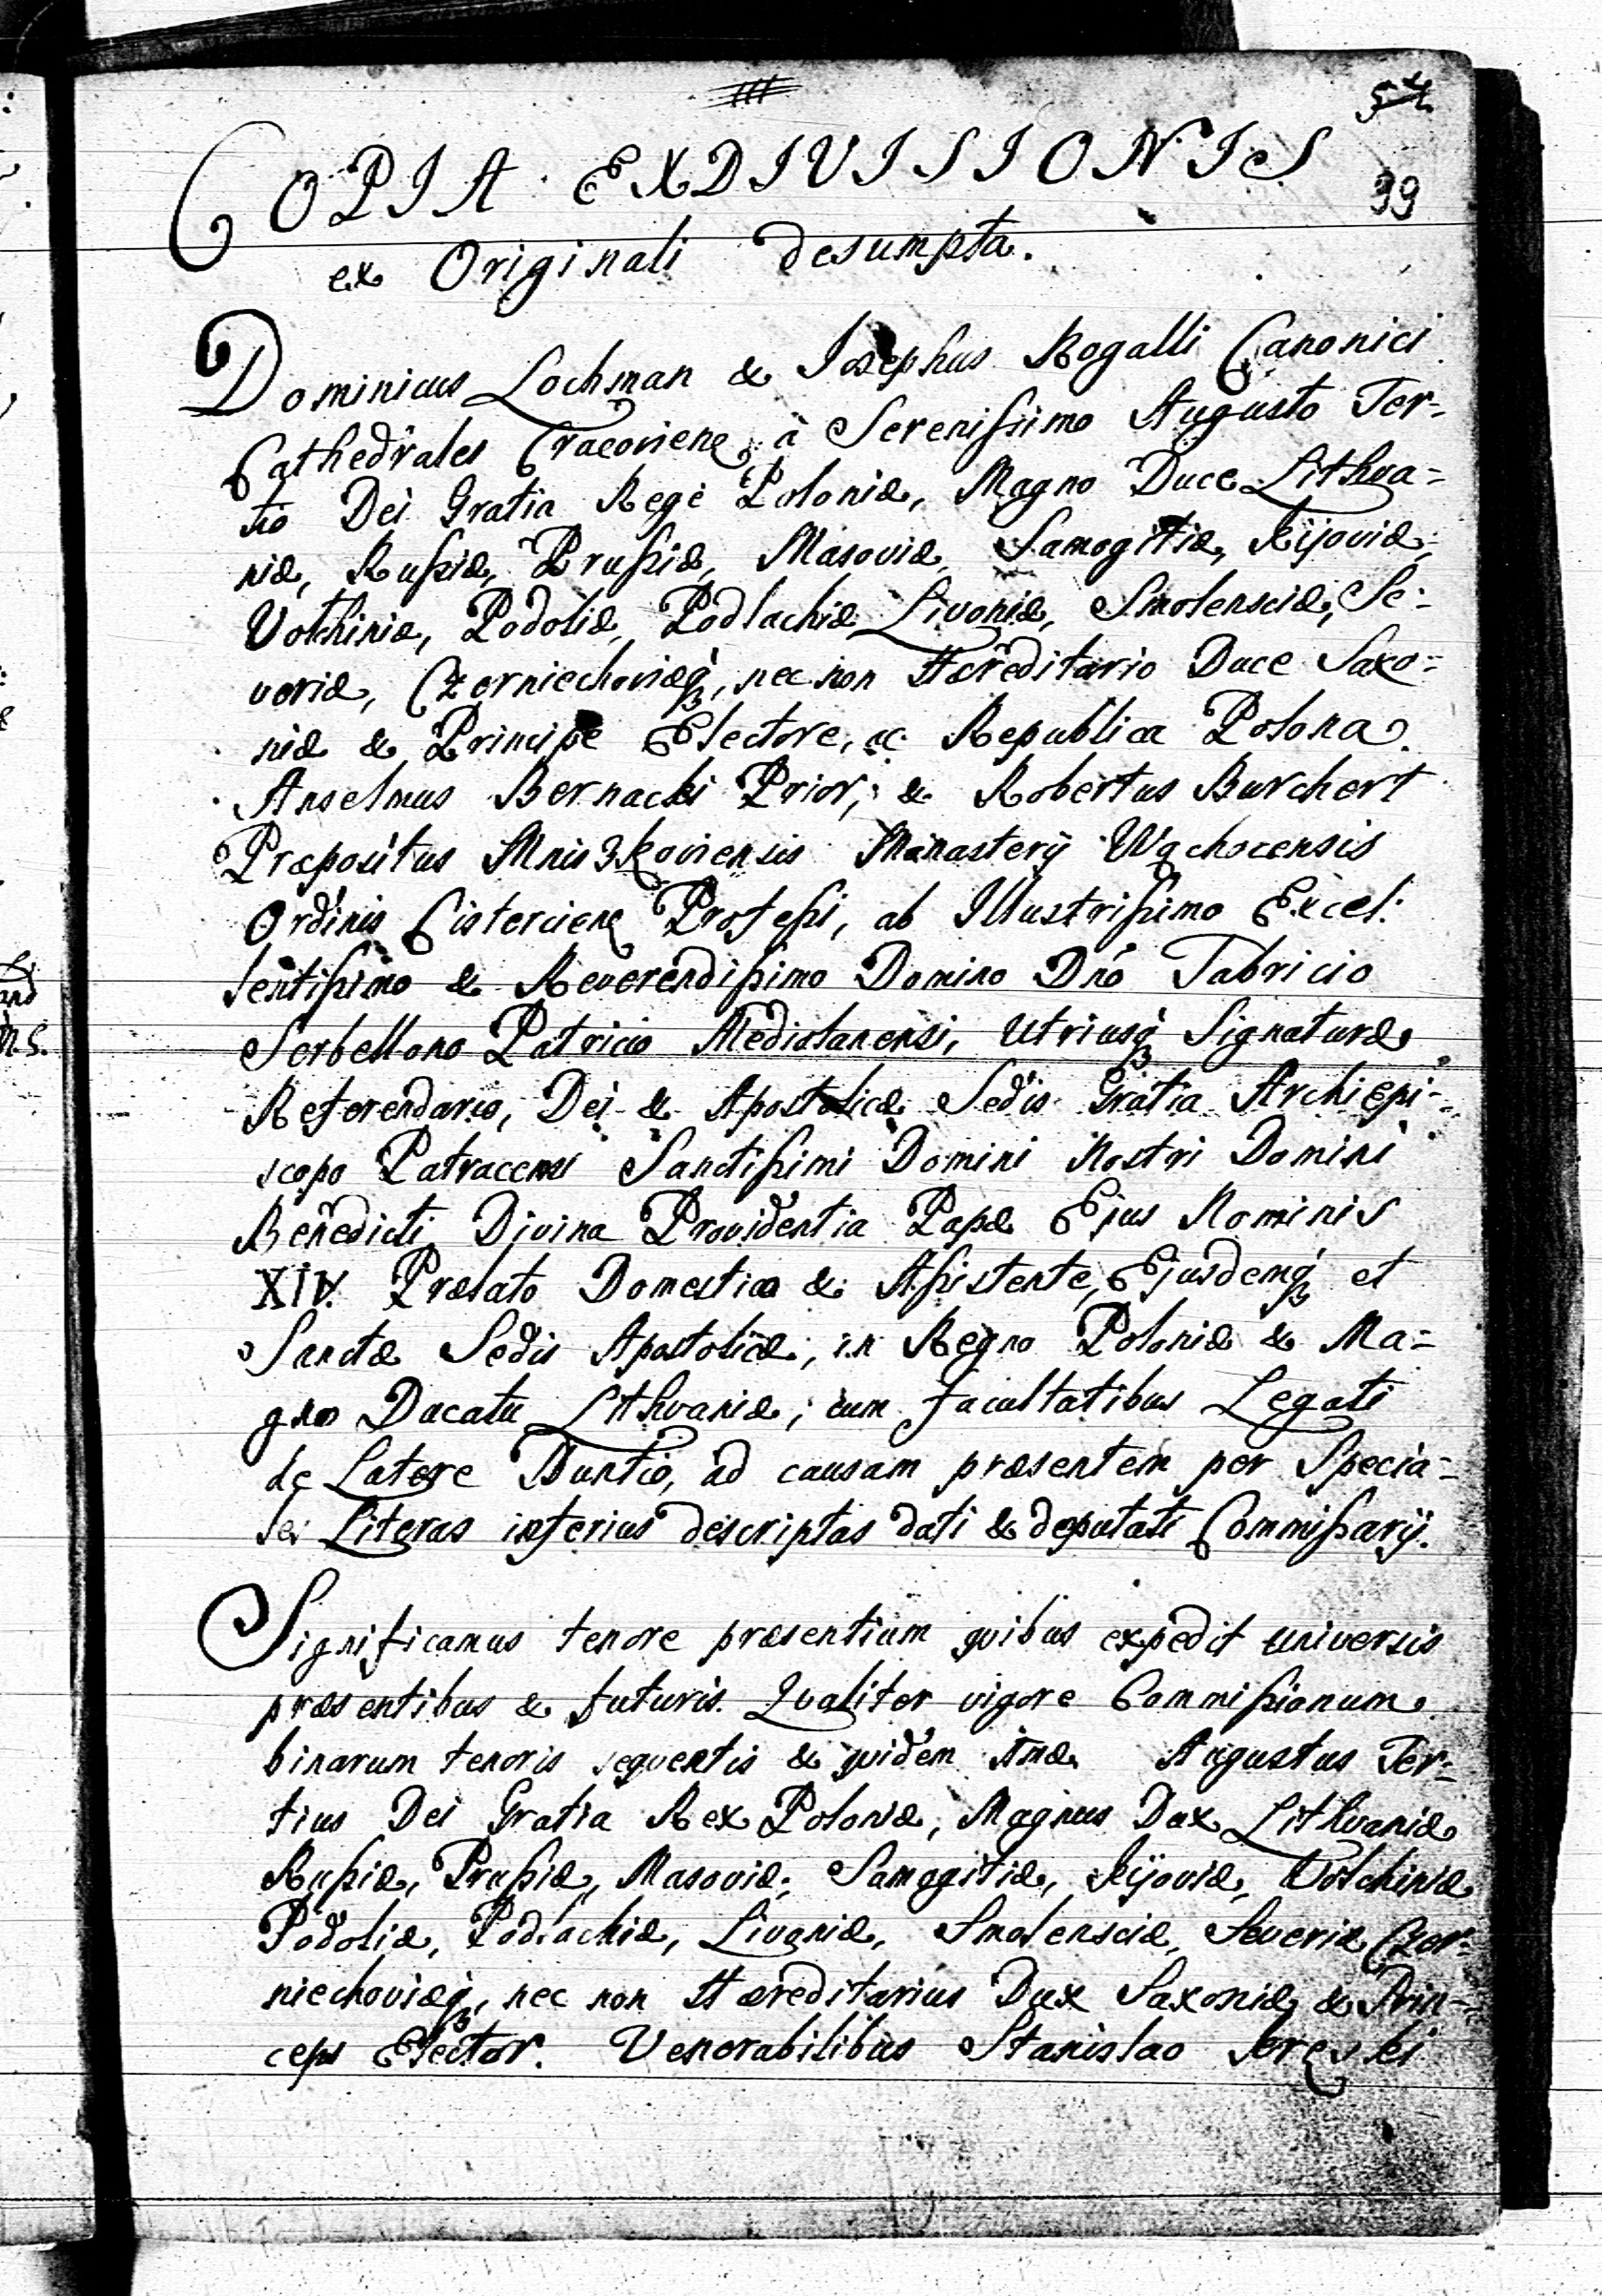 COPIA EXDIVISIONIS
99
ex Originali desumpta.
Dominicus Lochman & Josephus Rogalli Canonici
Cathedrales Cracovienẽ à Serenißimo Augusto Ter-
tio Dei Gratia Rege Poloniæ, Magno Duce Lithva-
niæ, Rußiæ, Prußiæ, Masoviæ, Samogitiæ, Kijoviæ,
Volchiniæ, Podoliæ, Podlachiæ Livoniæ, Smolensciæ, Se-
veriæ, Czerniechoviæq́;, nec non Hæreditario Duce Saxo-
niæ & Principe Electore, ac Republica Polona.
Anselmus Bernacki Prior, & Robertus Burchert
Præpositus Mnis3kovienusis Monasterÿ Wąchocensis
Ordinis Cistercienẽ Profeßi, ab Illustrißimo Excel-
lentißimo & Reverendißimo Domino Dnó Fabricio
Serbellono Patricio Mediolanensi, Utriusq́; Signaturæ
Referendario, Dei & Apostolicæ Sedis Gratia Archiepi-
scopo Patracensi Sanctißimi Domini Nostri Domini
Benedicti Divina Providentia Papæ Ejus Nominis
XIV. Prælato Domestico & Aßistente, Ejusdemq́; et
Sanctæ Sedis Apostolicæ, in Regno Poloniæ & Ma-
gno Ducatu Lithvaniæ, cum facultatibus Legati
de Latere Nuntio, ad causam præsentem per Specia-
les Literas inferius descriptas dati & deputati Commißarÿ.
Significamus tenore præsentium qvibus expedit universis
præsentibus & futuris. Qvaliter vigore Commißionum
binarum tenoris seqventis & qvidem unæ Augustus Ter-
tius Dei Gratia Rex Poloniæ, Magnus Dux Lithvaniæ
Rußiæ, Prußiæ, Masoviæ, Samogitiæ, Kijoviæ, Volchiniæ
Podoliæ, Podlachiæ, Livoniæ, Smolensciæ, Severiæ Czer-
niechoviæq́;, nec non Hæreditarius Dux Saxoniæ & Prin-
ceps Elector. Venerabilibus Stanislao